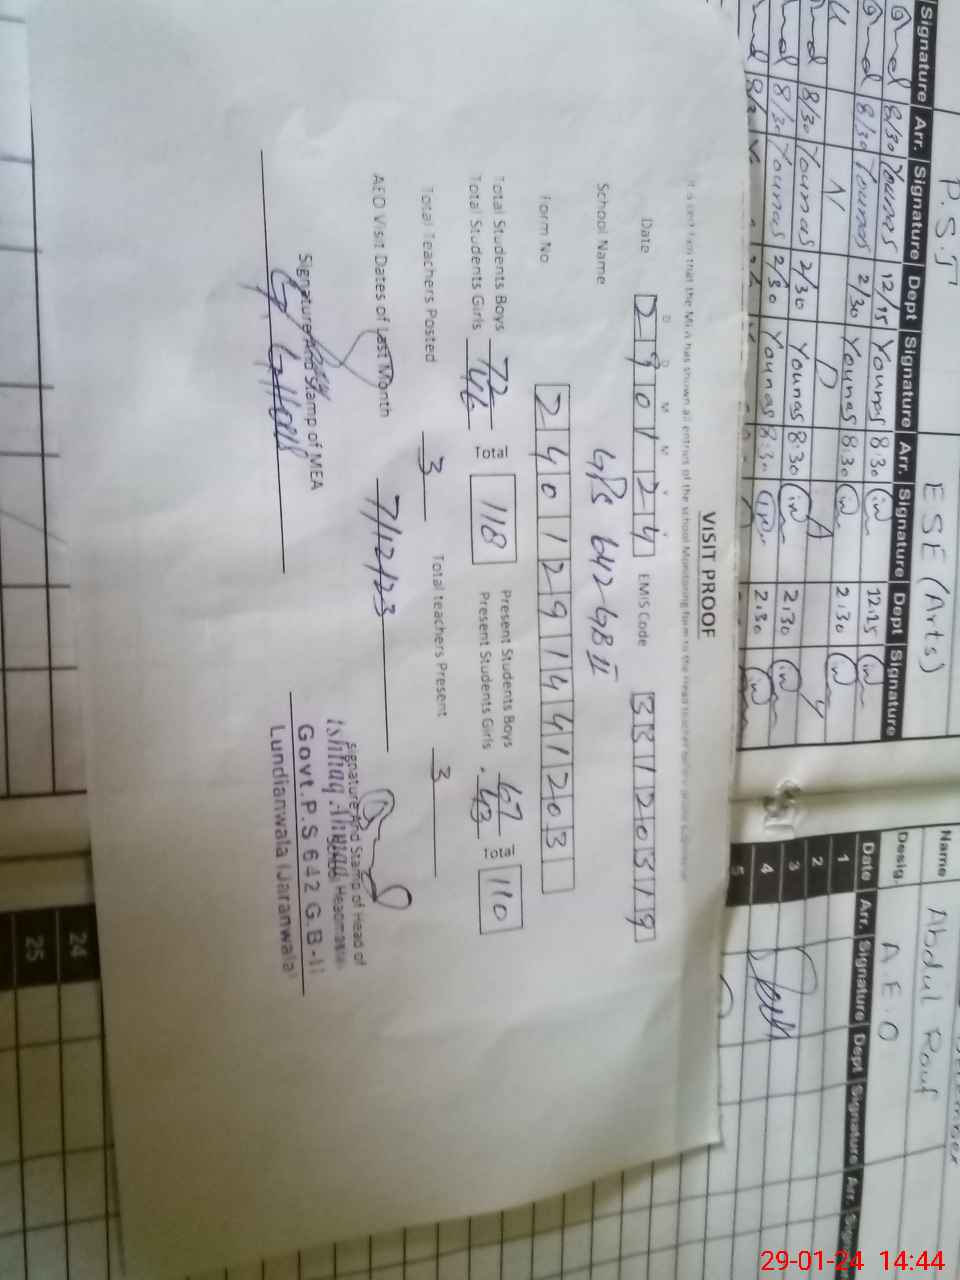 VISIT PROOF
Date D D M M Y Y 290124 EMIS Code 33120319
School Name GPS 642 GB II
Form No 2401291441203
Total Students Boys 72 Total 118 Present Students Boys 67 Total 110
Total Students Girls 46 Present Students Girls 43
Total Teachers Posted 3 Total teachers Present 3
AEO Visit Dates of Last Month 7/12/23
Signature And Stamp of MEA
Signature And Stamp of Head of
Ishtiaq Ahmad Headmaster
Govt. P.S 642 G.B-II
Lundianwala (Jaranwala)
P.S.T
ESE (Arts)
Signature Arr. Signature Dept Signature Arr. Signature Dept Signature
8/30 Younas 12/15 Younas 8:30 in 12:25 in
8/30 Younas 2/30 Younas 8:30 in 2:30 in
8/30 Younas 2/30 Younas 8:30 in 2:30 in
8/30 Younas 2/30 Younas 8:30 in 2:30 in
Name Abdul Rouf
Desig. A.E.O
Date Arr. Signature Dept Signature Arr.
1
2
3
4
5
24
25
29-01-24 14:44